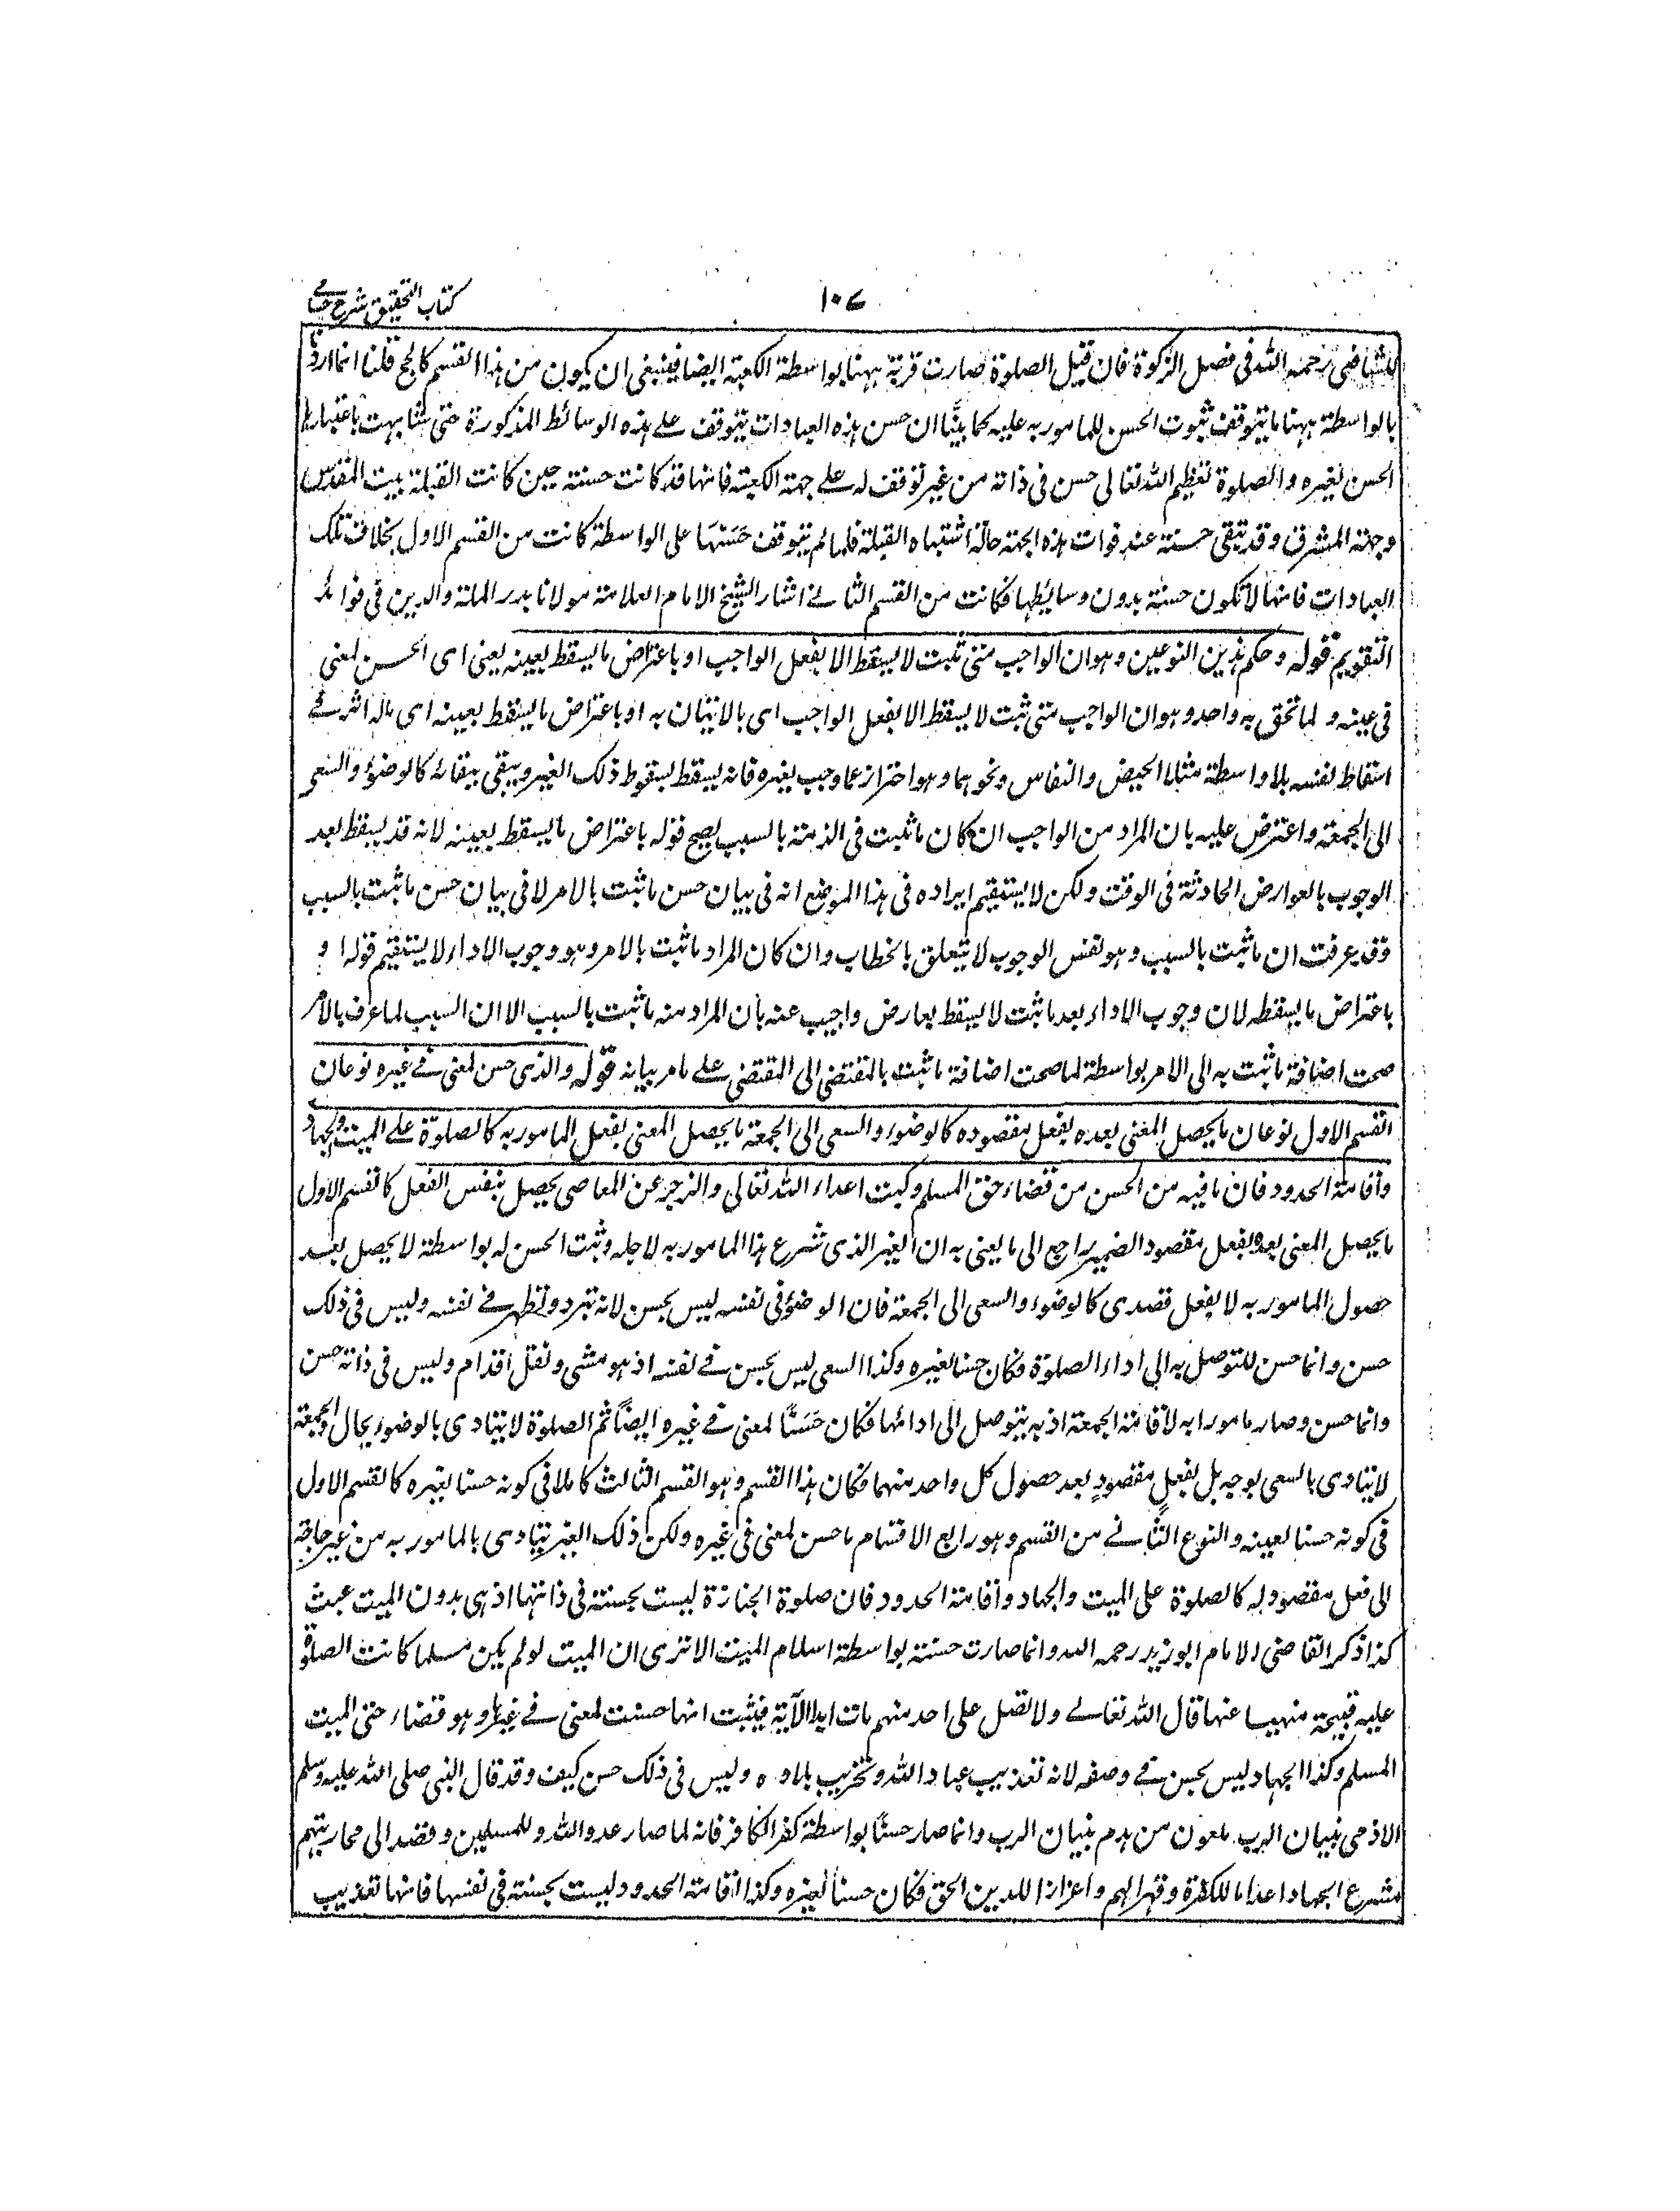 كتاب التحقيق شرح حسامے
١٠٧
للشافعى رحمه الله فى فصل الزكوة فان قيل الصلوة صارت قربة ههنا بواسطة الكعبة ايضا فينبغى ان يكون من هذا القسم كالحج قلنا انما اردنا
بالواسطة ههنا ما يتوقف ثبوت الحسن للمامور به عليه كما بيَّنا ان حسن هذه العبادات يتوقف على هذه الوسائط المذكورة حتى شابهت باعتبارها
الحسن لغيره والصلوة تعظيم الله تعالى حسن فى ذاته من غير توقف له على جهة الكعبة فانها قد كانت حسنة حين كانت القبلة بيت المقدس
وجهة المشرق وقد تبقى حسنة عند فوات هذه الجهة حالة اشتباه القبلة فلما لم يتوقف حسنها على الواسطة كانت من القسم الاول بخلاف تلك
العبادات فانها لا تكون حسنة بدون وسائطها فكانت من القسم الثانے اشار الشيخ الامام العلامة مولانا بدر الملة والدين فى فوائد
التقويم قوله وحكم هذين النوعين وهو ان الواجب متى ثبت لا يسقط الا بفعل الواجب او باعتراض ما يسقط بعينه يعنى اى الحسن لمعنى
فى عينه و لما تحق به واحد وهو ان الواجب متى ثبت لا يسقط الا بفعل الواجب اى بالاتيان به او باعتراض ما يسقط بعينه اى ماله اثر فے
اسقاط نفسه بلا واسطة مثل الحيض والنفاس ونحوهما وهو احتراز عما وجب لغيره فانه يسقط بسقوط ذلك الغير ويبقى ببقائه كالوضوء والسعى
الى الجمعة واعترض عليه بان المراد من الواجب ان كان ما ثبت فى الذمة بالسبب يصح قوله باعتراض ما يسقط بعينه لانه قد يسقط بعد
الوجوب بالعوارض الحادثة فى الوقت ولكن لا يستقيم ايراده فى هذا الموضع انه فى بيان حسن ما ثبت بالامر لا فى بيان حسن ما ثبت بالسبب
وقد عرفت ان ما ثبت بالسبب وهو نفس الوجوب لا يتعلق بالخطاب وان كان المراد ما ثبت بالامر وهو وجوب الاداء لا يستقيم قوله او
باعتراض ما يسقطه لان وجوب الاداء بعد ما ثبت لا يسقط بعارض واجيب عنه بان المراد منه ما ثبت بالسبب الا ان السبب لما عرف بالامر
صحت اضافة ما ثبت به الى الامر بواسطة لما صحت اضافة ما ثبت بالمقتضى الى المقتضى على ما مر بيانه قوله والذى حسن لمعنى فے غيره نوعان
القسم الاول نوعان ما يحصل المعنى بعده بفعل مقصوده كالوضوء والسعى الى الجمعة ما يحصل المعنى بفعل المامور به كالصلوة على الميت والجهاد
واقامة الحدود فان ما فيه من الحسن من قضاء حق المسلم وكبت اعداء الله تعالى والزجر عن المعاصى يحصل بنفس الفعل كالقسم الاول
ما يحصل المعنى بعده بفعل مقصود الضمير راجع الى ما يعنى به ان الغير الذى شرع هذا المامور به لاجله وثبت الحسن له بواسطة لا يحصل بعد
حصول المامور به لا بفعل قصدى كالوضوء والسعى الى الجمعة فان الوضوء فى نفسه ليس بحسن لانه تبرد وتطهر فے نفسه وليس فى ذلك
حسن وانما حسن للتوصل به الى اداء الصلوة فكان حسنا لغيره وكذا السعى ليس بحسن فے نفسه اذ هو مشى ونقل اقدام وليس فى ذاته حسن
وانما حسن وصار مامورا به لاقامة الجمعة اذ به يتوصل الى ادائها فكان حَسَنًا لمعنى فے غيره ايضًا ثم الصلوة لا يتادى بالوضوء بحال والجمعة
لا يتادى بالسعى بوجه بل بفعلٍ مقصودٍ بعد حصول كل واحد منهما فكان هذا القسم وهو القسم الثالث كاملا فى كونه حسنا لغيره كالقسم الاول
فى كونه حسنا لعينه والنوع الثانے من القسم وهو رابع الاقسام ما حسن لمعنى فى غيره ولكن ذلك الغير يتادى بالمامور به من غير حاجة
الى فعل مقصود له كالصلوة على الميت والجهاد واقامة الحدود فان صلوة الجنازة ليست بحسنة فى ذاتها اذ هى بدون الميت عبث
كذا ذكر القاضى الامام ابو زيد رحمه الله وانما صارت حسنة بواسطة اسلام الميت الا ترى ان الميت لو لم يكن مسلما كانت الصلوة
عليه قبيحة منهيا عنها قال الله تعالے ولا تصل على احد منهم مات ابدا الآية فيثبت انها حسنت لمعنى فے غيرها وهو قضاء حق الميت
المسلم وكذا الجهاد ليس بحسن فے وصفه لانه تعذيب عباد الله وتخريب بلاده وليس فى ذلك حسن كيف وقد قال النبى صلى الله عليه وسلم
الادمى بنيان الرب ملعون من هدم بنيان الرب وانما صار حسنًا بواسطة كفر الكافر فانه لما صار عدو الله وللمسلمين وقصد الى محاربتهم
شرع الجهاد اعداما للكفرة وقهرا لهم واعزازا للدين الحق فكان حسنًا لغيره وكذا اقامة الحدود ليست بحسنة فى نفسها فانها تعذيب